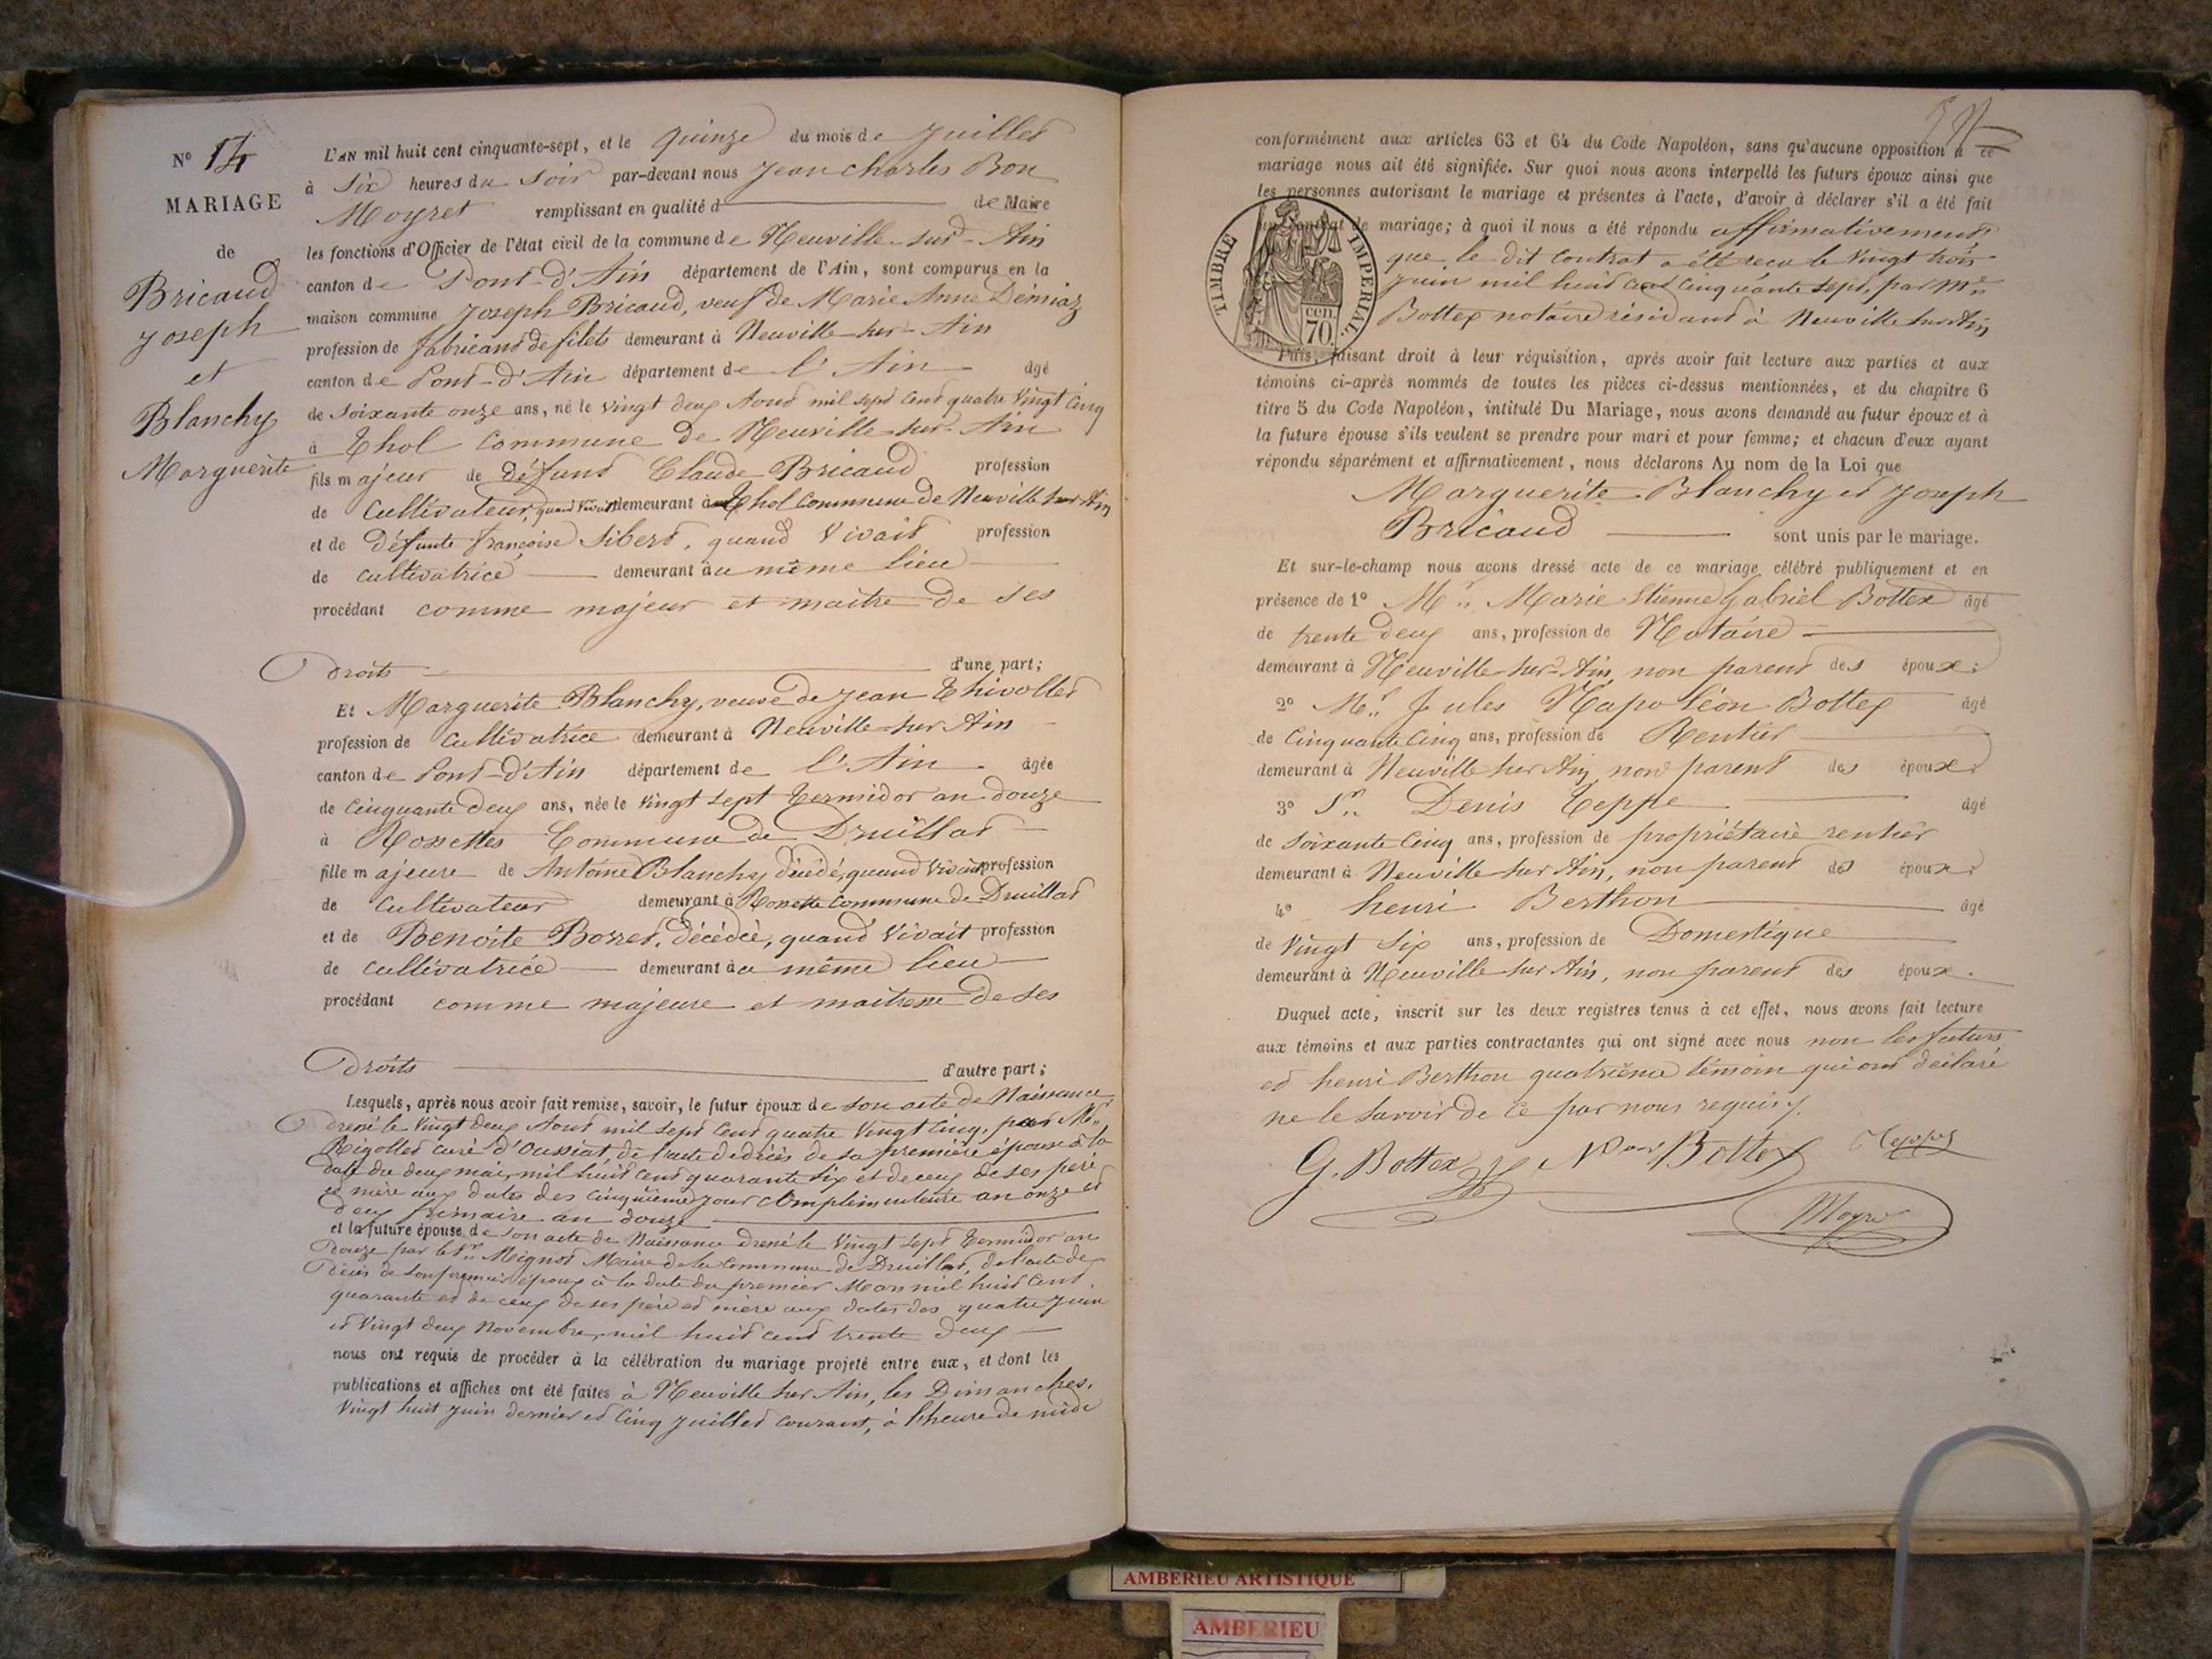 N° 14
MARIAGE
de
Bricaud
Joseph
et
Blanchy
Marguerite
L'AN mil huit cent cinquante-sept, et le quinze du mois de Juillet
à Six heures du Soir par-devant nous Jean Charles Bon
Moyret remplissant en qualité de Maire
les fonctions d'Officier de l'état civil de la commune de Neuville-sur-Ain
canton de Pont-d'Ain département de l'Ain, sont comparus en la
maison commune Joseph Bricaud, veuf de Marie Anne Démiaz
profession de fabricant de filets demeurant à Neuville-sur-Ain
canton de Pont-d'Ain département de l'Ain âgé
de Soixante onze ans, né le vingt deux Aout mil sept cent quatre vingt cinq
à Thol Commune de Neuville-sur-Ain
fils majeur de défunt Claude Bricaud profession
de Cultivateur, quand vivait demeurant à Thol Commune de Neuville sur Ain
et de défunte françoise Sibert, quand Vivait profession
de cultivatrice demeurant au même lieu
procédant comme majeur et maitre de ses
Droits d'une part;
Et Marguerite Blanchy, veuve de Jean Thivollet
profession de Cultivatrice demeurant à Neuville-sur Ain
canton de Pont-d'Ain département de l'Ain âgée
de Cinquante deux ans, née le vingt sept Termidor an douze
à Rossettes Commune de Druillat
fille majeure de Antoine Blanchy décédé, quand Vivait profession
de Cultivateur demeurant à Rossette Commune de Druillat
et de Benoite Borret, décédée, quand Vivait profession
de cultivatrice demeurant au même lieu
procédant comme majeure et maitresse de ses
Droits d'autre part;
Lesquels, après nous avoir fait remise, savoir, le futur époux de son acte de Naissance
dressé le vingt deux Aout mil sept cent quatre vingt cinq, par Mr
Rigollet curé d'Oussiat, de l'acte de décès de sa première épouse à la
date du deux mai, mil huit cent quarante six et de ceux de ses père
et mère aux dates des cinquième jour complémentaire an onze et
deux frimaire an douze
et la future épouse de son acte de Naissance dressé le Vingt Sept Termidor an
Douze par le Sr Mignot Maire de la Commune de Druillat, de l'acte de
Décès de son premier époux à la date du premier Mars mil huit Cent
quarante et de ceux de ses père et mère aux dates des quatre Juin
et Vingt deux Novembre, mil huit cent trente deux
nous ont requis de procéder à la célébration du mariage projeté entre eux, et dont les
publications et affiches ont été faites à Neuville sur Ain, les Dimanches,
Vingt huit Juin dernier et Cinq Juillet courant, à l'heure de midi
conformément aux articles 63 et 64 du Code Napoléon, sans qu'aucune opposition à ce
mariage nous ait été signifiée. Sur quoi nous avons interpellé les futurs époux ainsi que
les personnes autorisant le mariage et présentes à l'acte, d'avoir à déclarer s'il a été fait
un contrat de mariage; à quoi il nous a été répondu affirmativement
que le dit Contrat a été recu le Vingt trois
Juin mil huit cent Cinquante Sept, par Me
Bottex notaire résidant à Neuville sur Ain
TIMBRE IMPERIAL.
cen.
70.
Puis, faisant droit à leur réquisition, après avoir fait lecture aux parties et aux
témoins ci-après nommés de toutes les pièces ci-dessus mentionnées, et du chapitre 6
titre 5 du Code Napoléon, intitulé Du Mariage, nous avons demandé au futur époux et à
la future épouse s'ils veulent se prendre pour mari et pour femme; et chacun d'eux ayant
répondu séparément et affirmativement, nous déclarons Au nom de la Loi que
Marguerite Blanchy et Joseph
Bricaud sont unis par le mariage.
Et sur-le-champ nous avons dressé acte de ce mariage célébré publiquement et en
présence de 1° Mr Marie Etienne Gabriel Bottex âgé
de trente deux ans, profession de Notaire
demeurant à Neuville-sur-Ain, non parent des époux;
2° Mr Jules Napoléon Bottex âgé
de Cinquante Cinq ans, profession de Rentier
demeurant à Neuville sur Ain, non parent des époux;
3° Sr Denis Teppe âgé
de Soixante Cinq ans, profession de propriétaire rentier
demeurant à Neuville sur Ain, non parent des époux;
4° henri Berthon âgé
de Vingt Six ans, profession de Domestique
demeurant à Neuville sur Ain, non parent des époux.
Duquel acte, inscrit sur les deux registres tenus à cet effet, nous avons fait lecture
aux témoins et aux parties contractantes qui ont signé avec nous non les futurs
et henri Berthon quatrième témoin qui ont déclaré
ne le Savoir de ce par nous requis.
G. Bottex Non Bottex Teppe
Moyret
AMBERIEU ARTISTIQUE
AMBERIEU